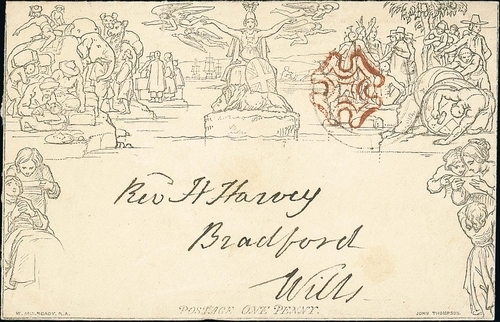 Revd H Harvey
Bradford
Wilts
POSTAGE ONE PENNY.
W. MULREADY, R.A.
JOHN THOMPSON.